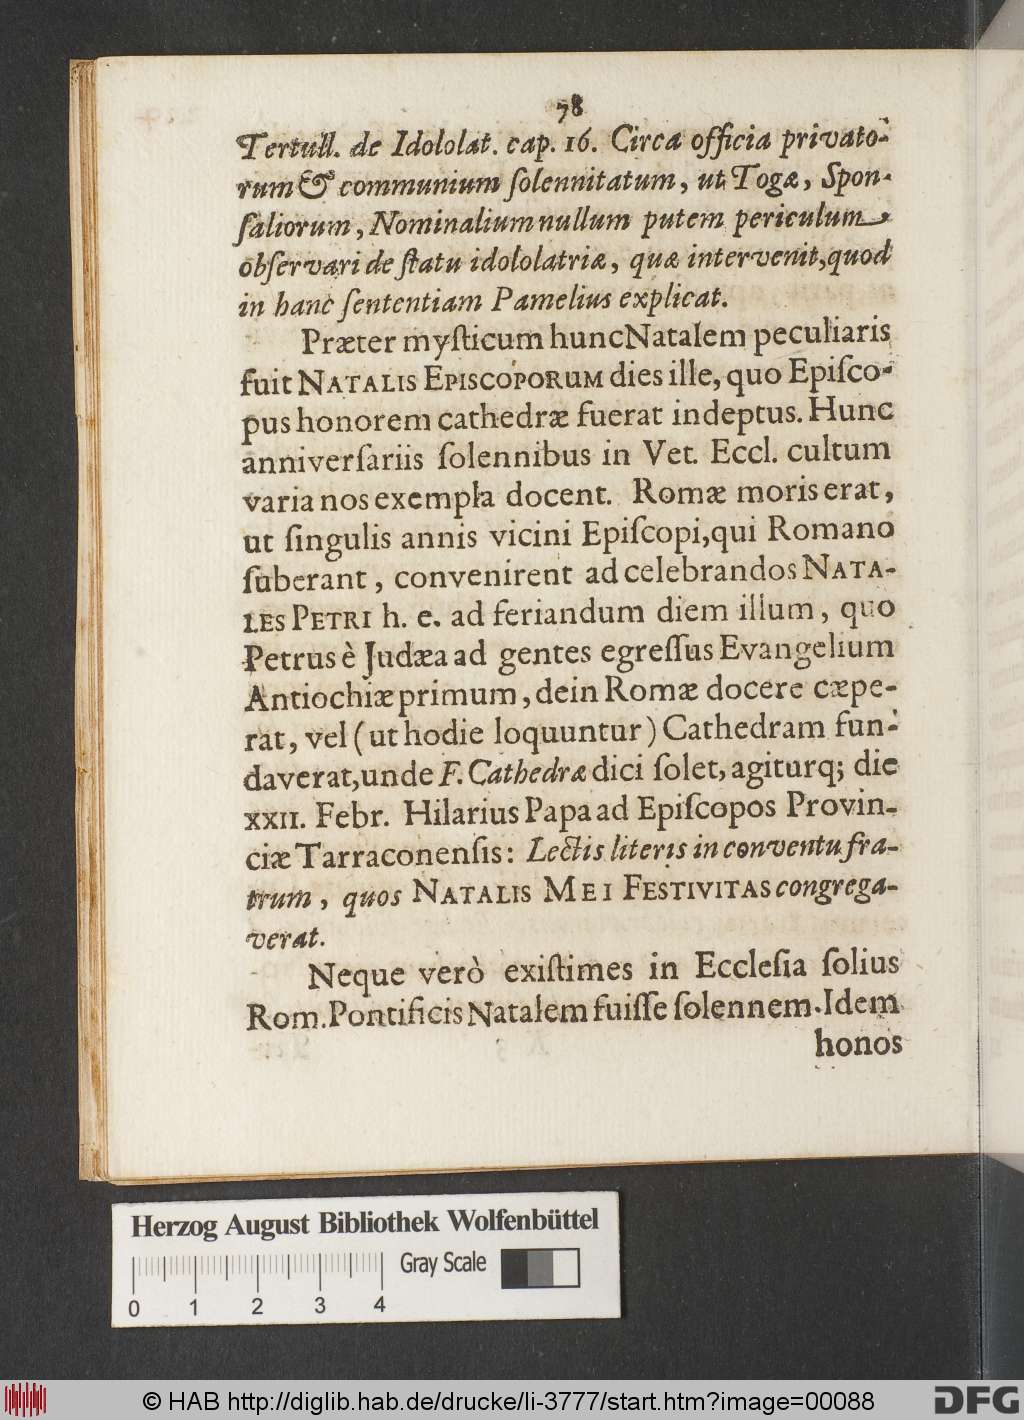 78
Tertull. de Idololat. cap. 16. Circa officia privato-
rum & communium ſolennitatum, ut Togæ, Spon-
ſaliorum, Nominalium nullum putem periculum
obſervari de ſtatu idololatriæ, quæ intervenit, quod
in hanc ſententiam Pamelius explicat.
Præter myſticum hunc Natalem peculiaris
fuit NATALIS EPISCOPORUM dies ille, quo Epiſco-
pus honorem cathedræ fuerat indeptus. Hunc
anniverſariis ſolennibus in Vet. Eccl. cultum
varia nos exempla docent. Romæ moris erat,
ut ſingulis annis vicini Epiſcopi, qui Romano
ſuberant, convenirent ad celebrandos NATA-
LES PETRI h. e. ad feriandum diem illum, quo
Petrus è Judæa ad gentes egreſſus Evangelium
Antiochiæ primum, dein Romæ docere cæpe-
rat, vel (ut hodie loquuntur) Cathedram fun-
daverat, unde F. Cathedræ dici ſolet, agiturq; die
XXII. Febr. Hilarius Papa ad Epiſcopos Provin-
ciæ Tarraconenſis: Lectis literis in conventu fra-
trum, quos NATALIS MEI FESTIVITAS congrega-
verat.
Neque verò exiſtimes in Eccleſia ſolius
Rom. Pontificis Natalem fuiſſe ſolennem. Idem
honos
Herzog August Bibliothek Wolfenbüttel
Gray Scale
0 1 2 3 4
© HAB http://diglib.hab.de/drucke/li-3777/start.htm?image=00088
DFG